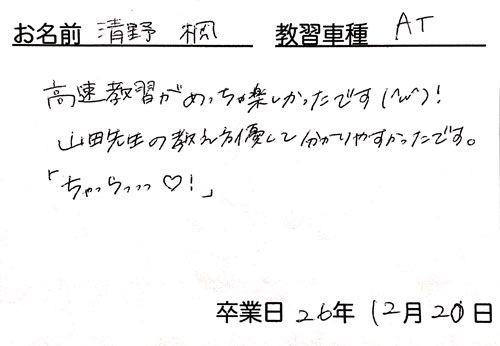 お名前 清野 楓 教習車種 AT
高速教習がめっちゃ楽しかったです(^ω^)!
山田先生の教え方優しくて分かりやすかったです。
「ちゃらっっっ♡!」
卒業日 26年 12月 20日